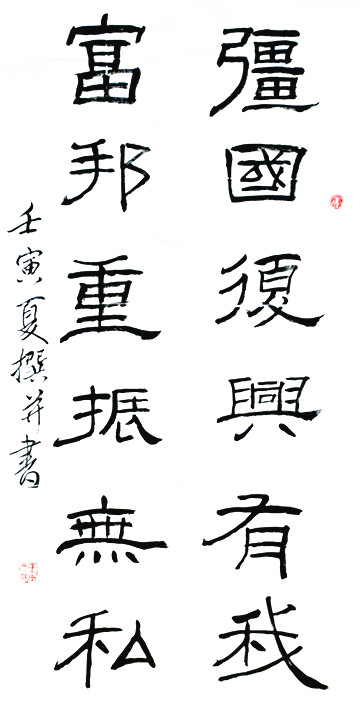 彊國須興有我
富邦重振無私
壬寅夏撰并書